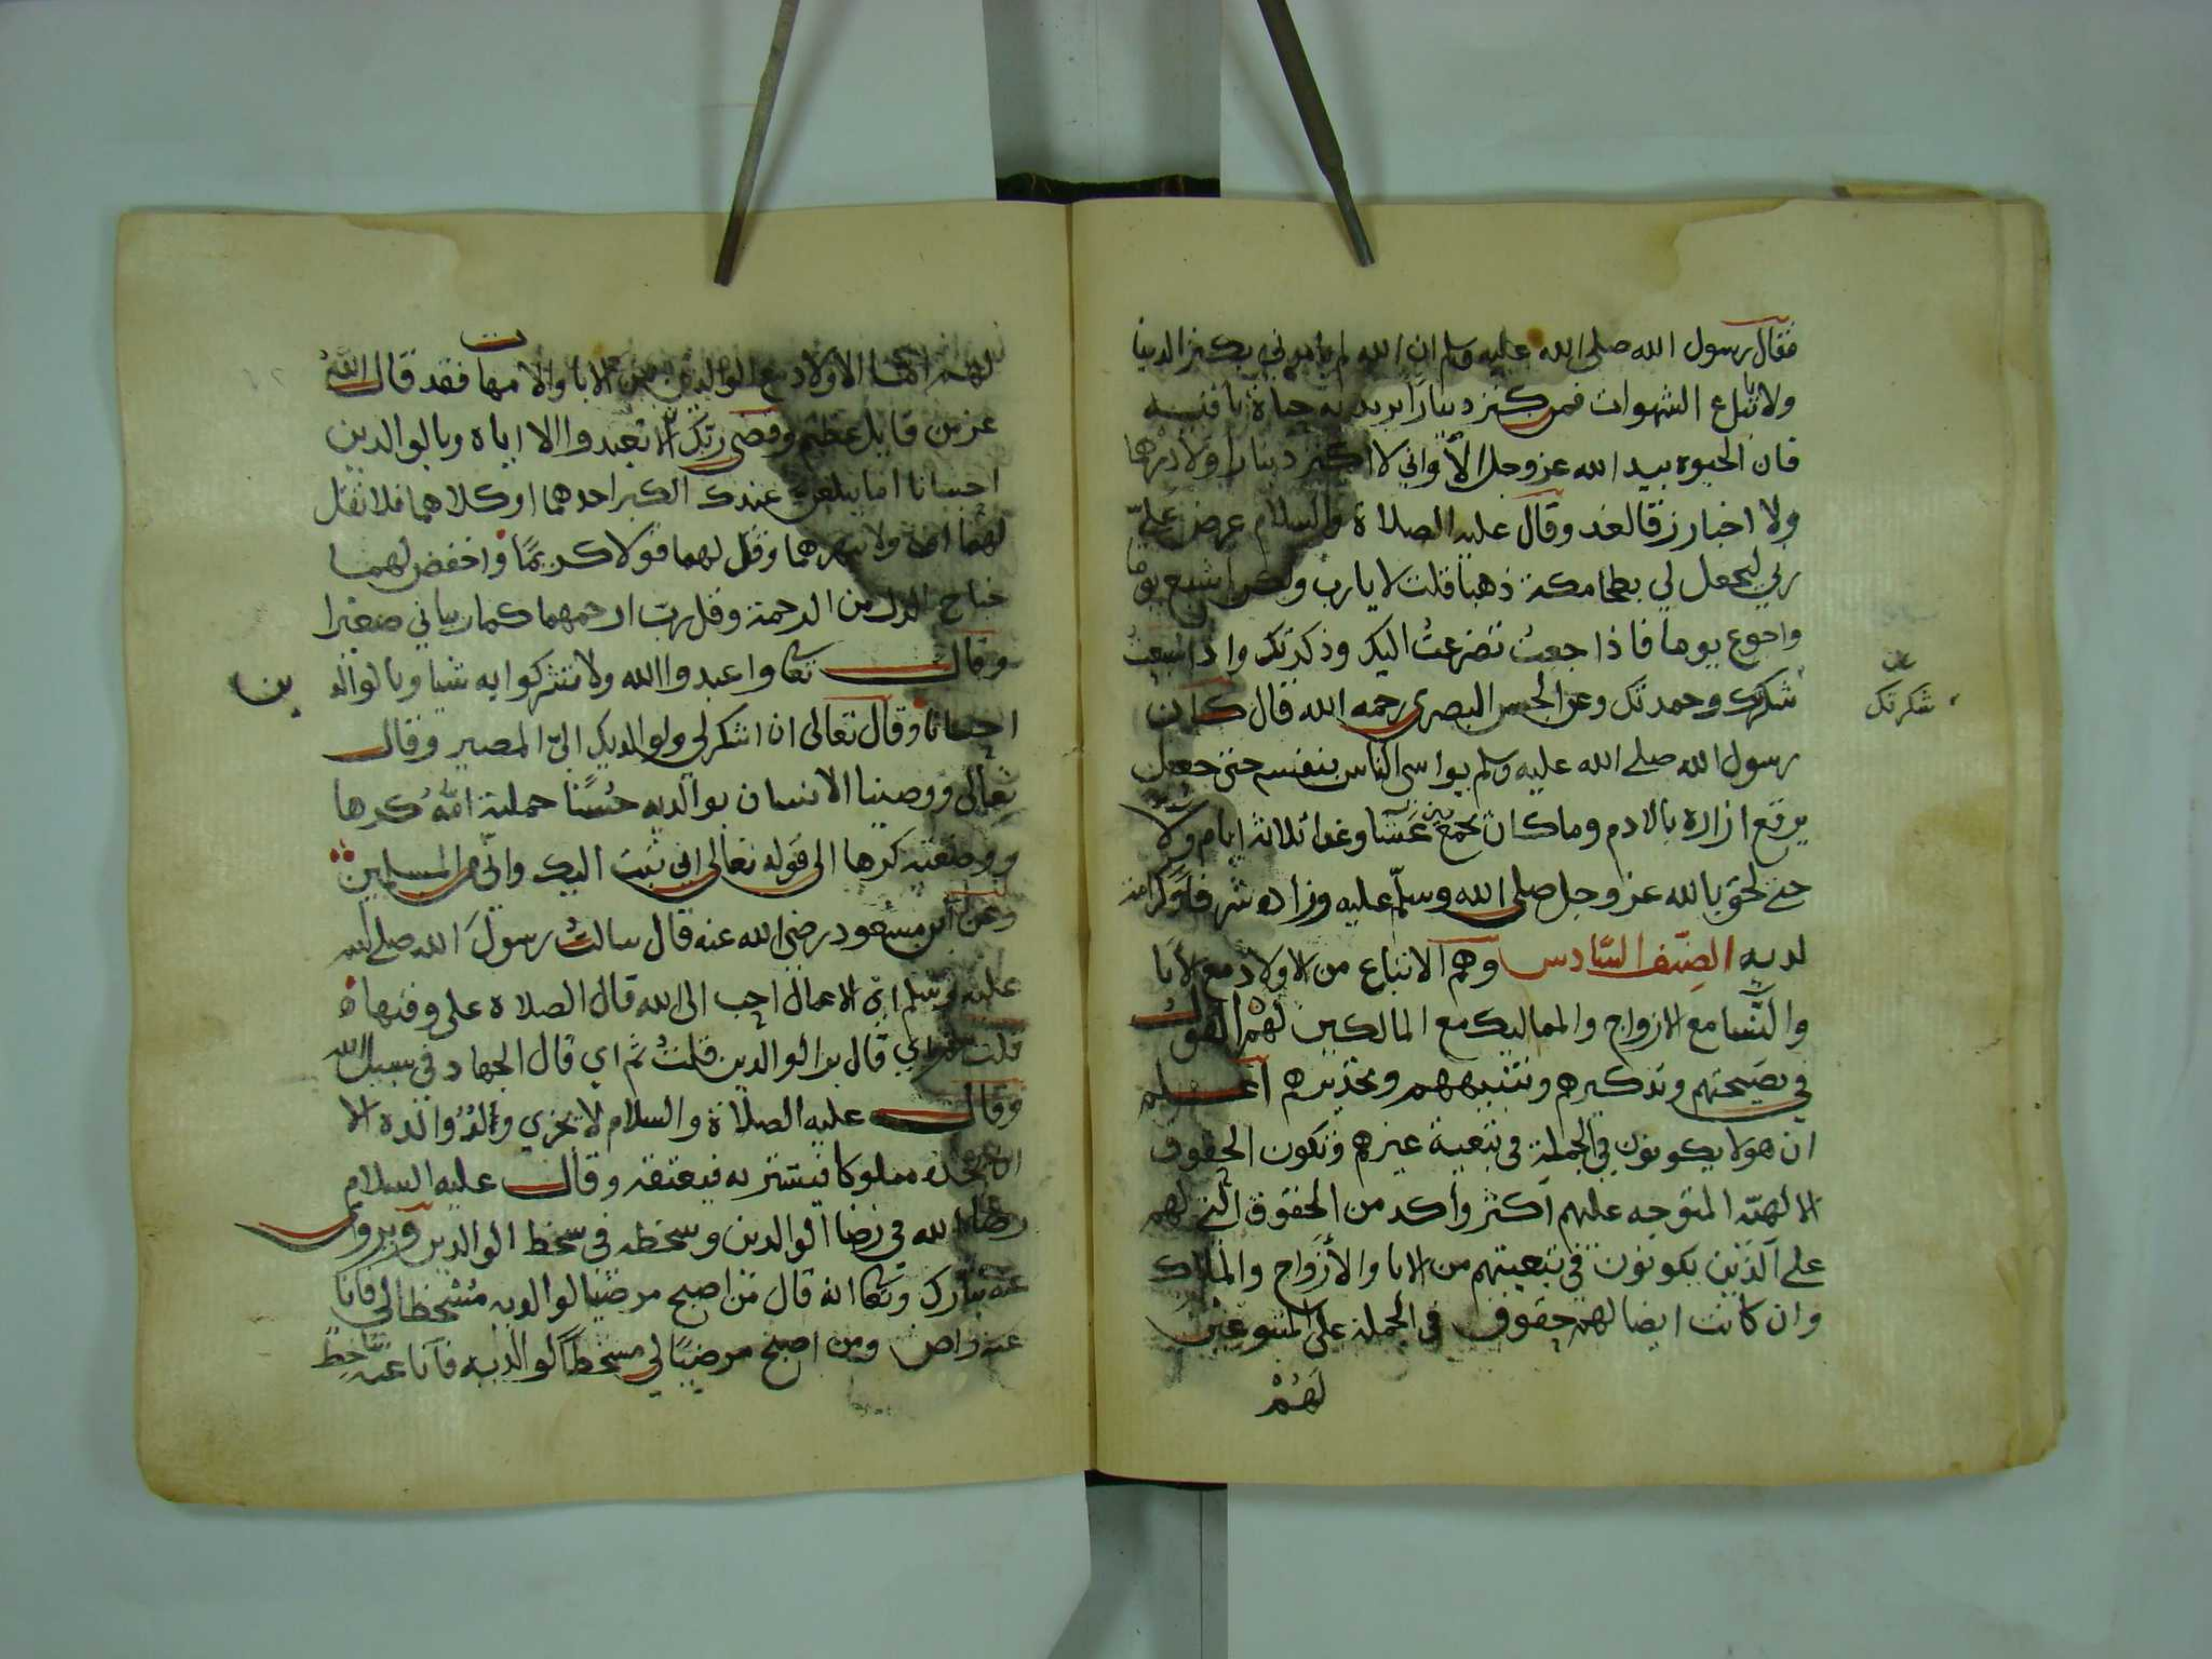 فقال رسول الله صلى الله عليه وسلم ان الله لم يأمرني بكنز الدنيا
ولا باتباع الشهوات فمن كنز دينارا يريد به حياة باقية
فان الحيوة بيد الله عز وجل الا واني لا اكنز دينارا ولا درهما
ولا اخبا رزقا لغد وقال عليه الصلاة والسلام عرض عليّ
ربي ليجعل لي بطحا مكة ذهبا فقلت لا يا رب ولكن اشبع يوما
واجوع يوما فاذا جعت تضرعت اليك وذكرتك واذا شبعت
شكرتك وحمدتك وعن الحسن البصري رحمه الله قال كان
شكرتك
رسول الله صلى الله عليه وسلم يواسي الناس بنفسه حتى جعل
يرقع ازاره بالادم وما كان يجمع بين عشا وغدا ثلاثة ايام ولآ
حتى لحق بالله عز وجل صلى الله وسلّم عليه وزاده شرفا وكرامة
لديه الصنف السّادس وهم الاتباع من الاولاد مع الابا
والنّسا مع الازواج والمماليك مع المالكين لهم القول
في نصيحتهم وتذكيرهم وتنبيههم وتحذيرهم اعلم
ان هولا يكونون في الجملة في تبعية غيرهم وتكون الحقوق
الالهيّة المتوجه عليهم اكثر وأكد من الحقوق التي لهم
على الّذين يكونون في تبعيتهم من الابا والأزواج والملاك
وان كانت ايضا لهم حقوق في الجملة على المتبوعين
لهُمْ
لهم امّا الاولاد مع الوالدين من الابا والامهات فقد قال اللهُ
عز من قايل عظيم وقضى ربّك الّا تعبدوا الا اياه وبالوالدين
احسانا اما يبلغن عندك الكبر احدهما او كلاهما فلا تقل
لهما اف ولا تنهرهما وقل لهما قولا كريمًا واخفض لهما
جناح الذل من الرحمة وقل رب ارحمهما كما ربياني صغيرا
وقال تعا واعبدوا الله ولا تشركوا به شيا وبالوالدين
احسانا وقال تعالى ان اشكر لي ولوالديك اليّ المصير وقال
تعالى ووصينا الانسان بوالديه حُسنًا حملته امّهُ كرها
ووضعته كرها الى قوله تعالى اني تبت اليك وانّي من المسلمين
وعن ابن مسعود رضي الله عنه قال سالتُ رسولَ الله صلى الله
عليه وسلم ايّ الاعمال احب الى الله قال الصلاة على وقتها
قلت ثم اي قال بر الوالدين قلتُ ثم اي قال الجهاد في سبيل الله
وقال عليه الصلاة والسلام لا يجزي ولدٌ والده الا
ان يجده مملوكا فيشتريه فيعتقه وقال عليه السلام
رضا الله في رضا الوالدين وسخطه في سخط الوالدين ويروى
عنه تبارك وتعا انه قال من اصبح مرضيا لوالديه مُسْخطا لي فانا
عنه راض ومن اصبح مرضيًا لي مسخطًا لوالديه فانا عنه ساخط